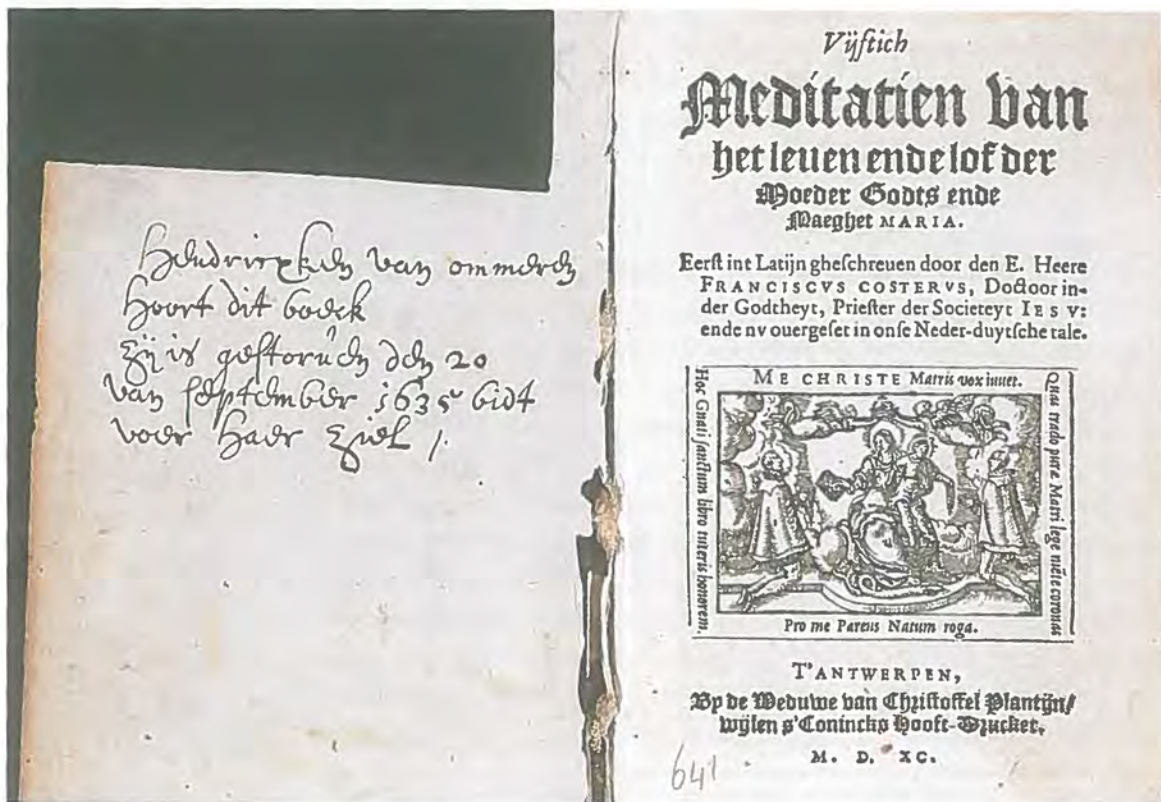 Hendrickken van ommeren
hoort dit boeck
zij is gestorúen den 20
van september 1635 bidt
voer haer ziel /.
Vijftich
Meditatien van
het leuen ende lof der
Moeder Godts ende
Maeghet MARIA.
Eerst int Latijn gheschreuen door den E. Heere
FRANCISCVS COSTERVS, Doctoor in-
der Godtheyt, Priester der Societeyt IESV:
ende nv ouergeset in onse Neder-duytsche tale.
ME CHRISTE Matris vox iuuet.
Hoc Gnati sanctum libro tuteris honorem.
Quas trado puræ Matri lege mẽte coronas
Pro me Parens Natum roga.
T'ANTWERPEN,
By de Weduwe van Christoffel Plantijn/
wijlen s'Conincks Hooft-Drucker.
M. D. XC.
641